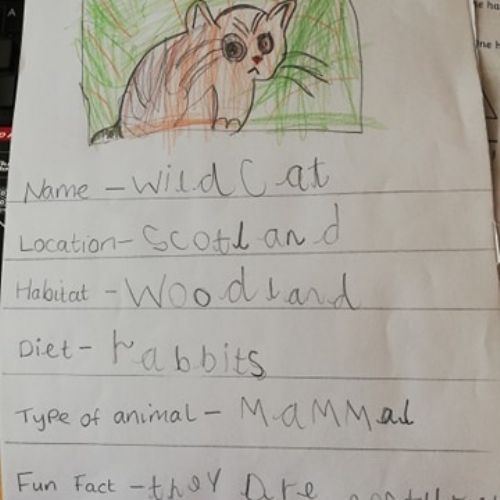 Name - Wild Cat
Location - Scotland
Habitat - Woodland
Diet - rabbits
Type of animal - MaMMal
Fun Fact - they are